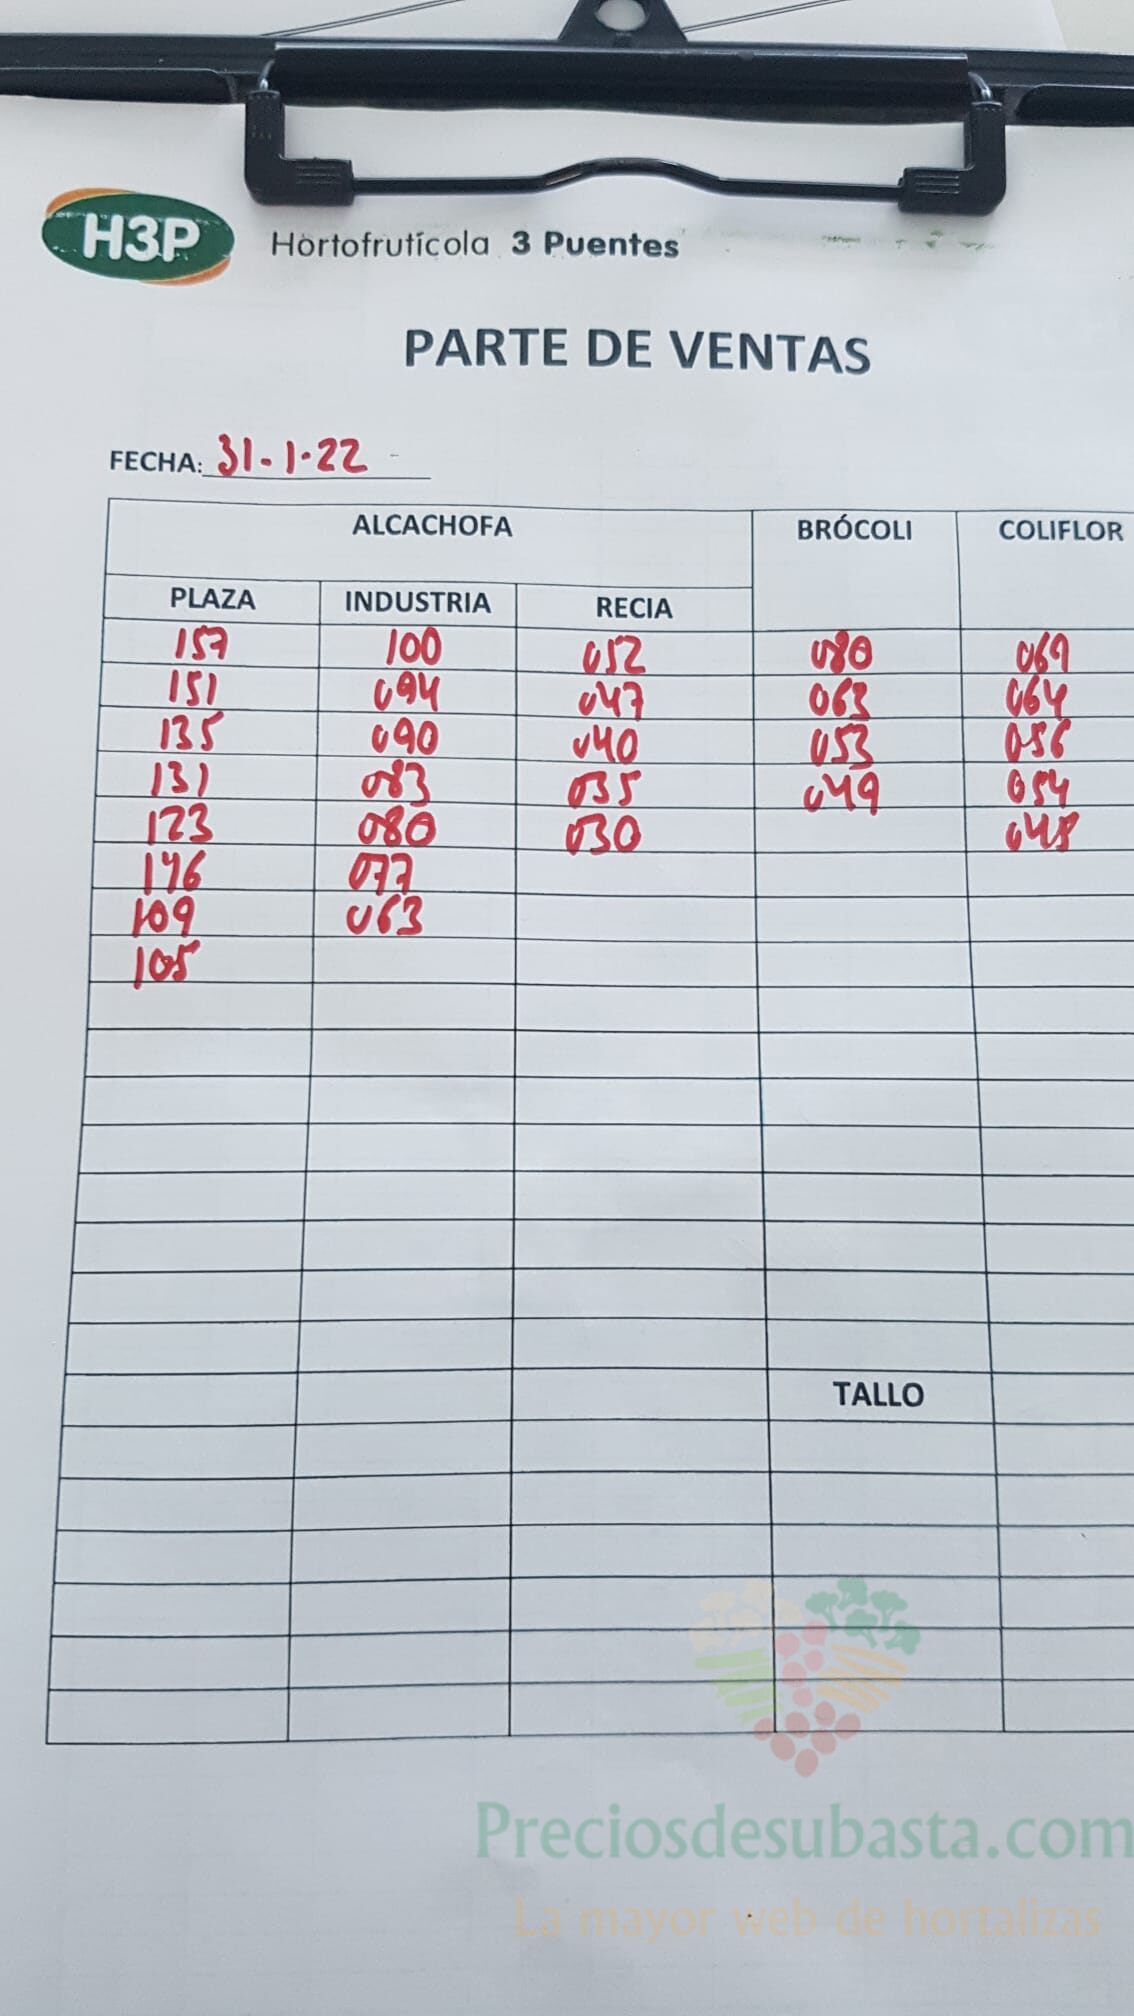 H3P Hortofrutícola 3 Puentes
PARTE DE VENTAS
FECHA: 31-1-22
ALCACHOFA BRÓCOLI COLIFLOR
PLAZA INDUSTRIA RECIA
157 100 052 080 069
151 094 047 063 064
135 090 040 053 056
131 083 035 049 054
123 080 030 048
116 077
109 063
105
TALLO
Preciosdesubasta.com
La mayor web de hortalizas